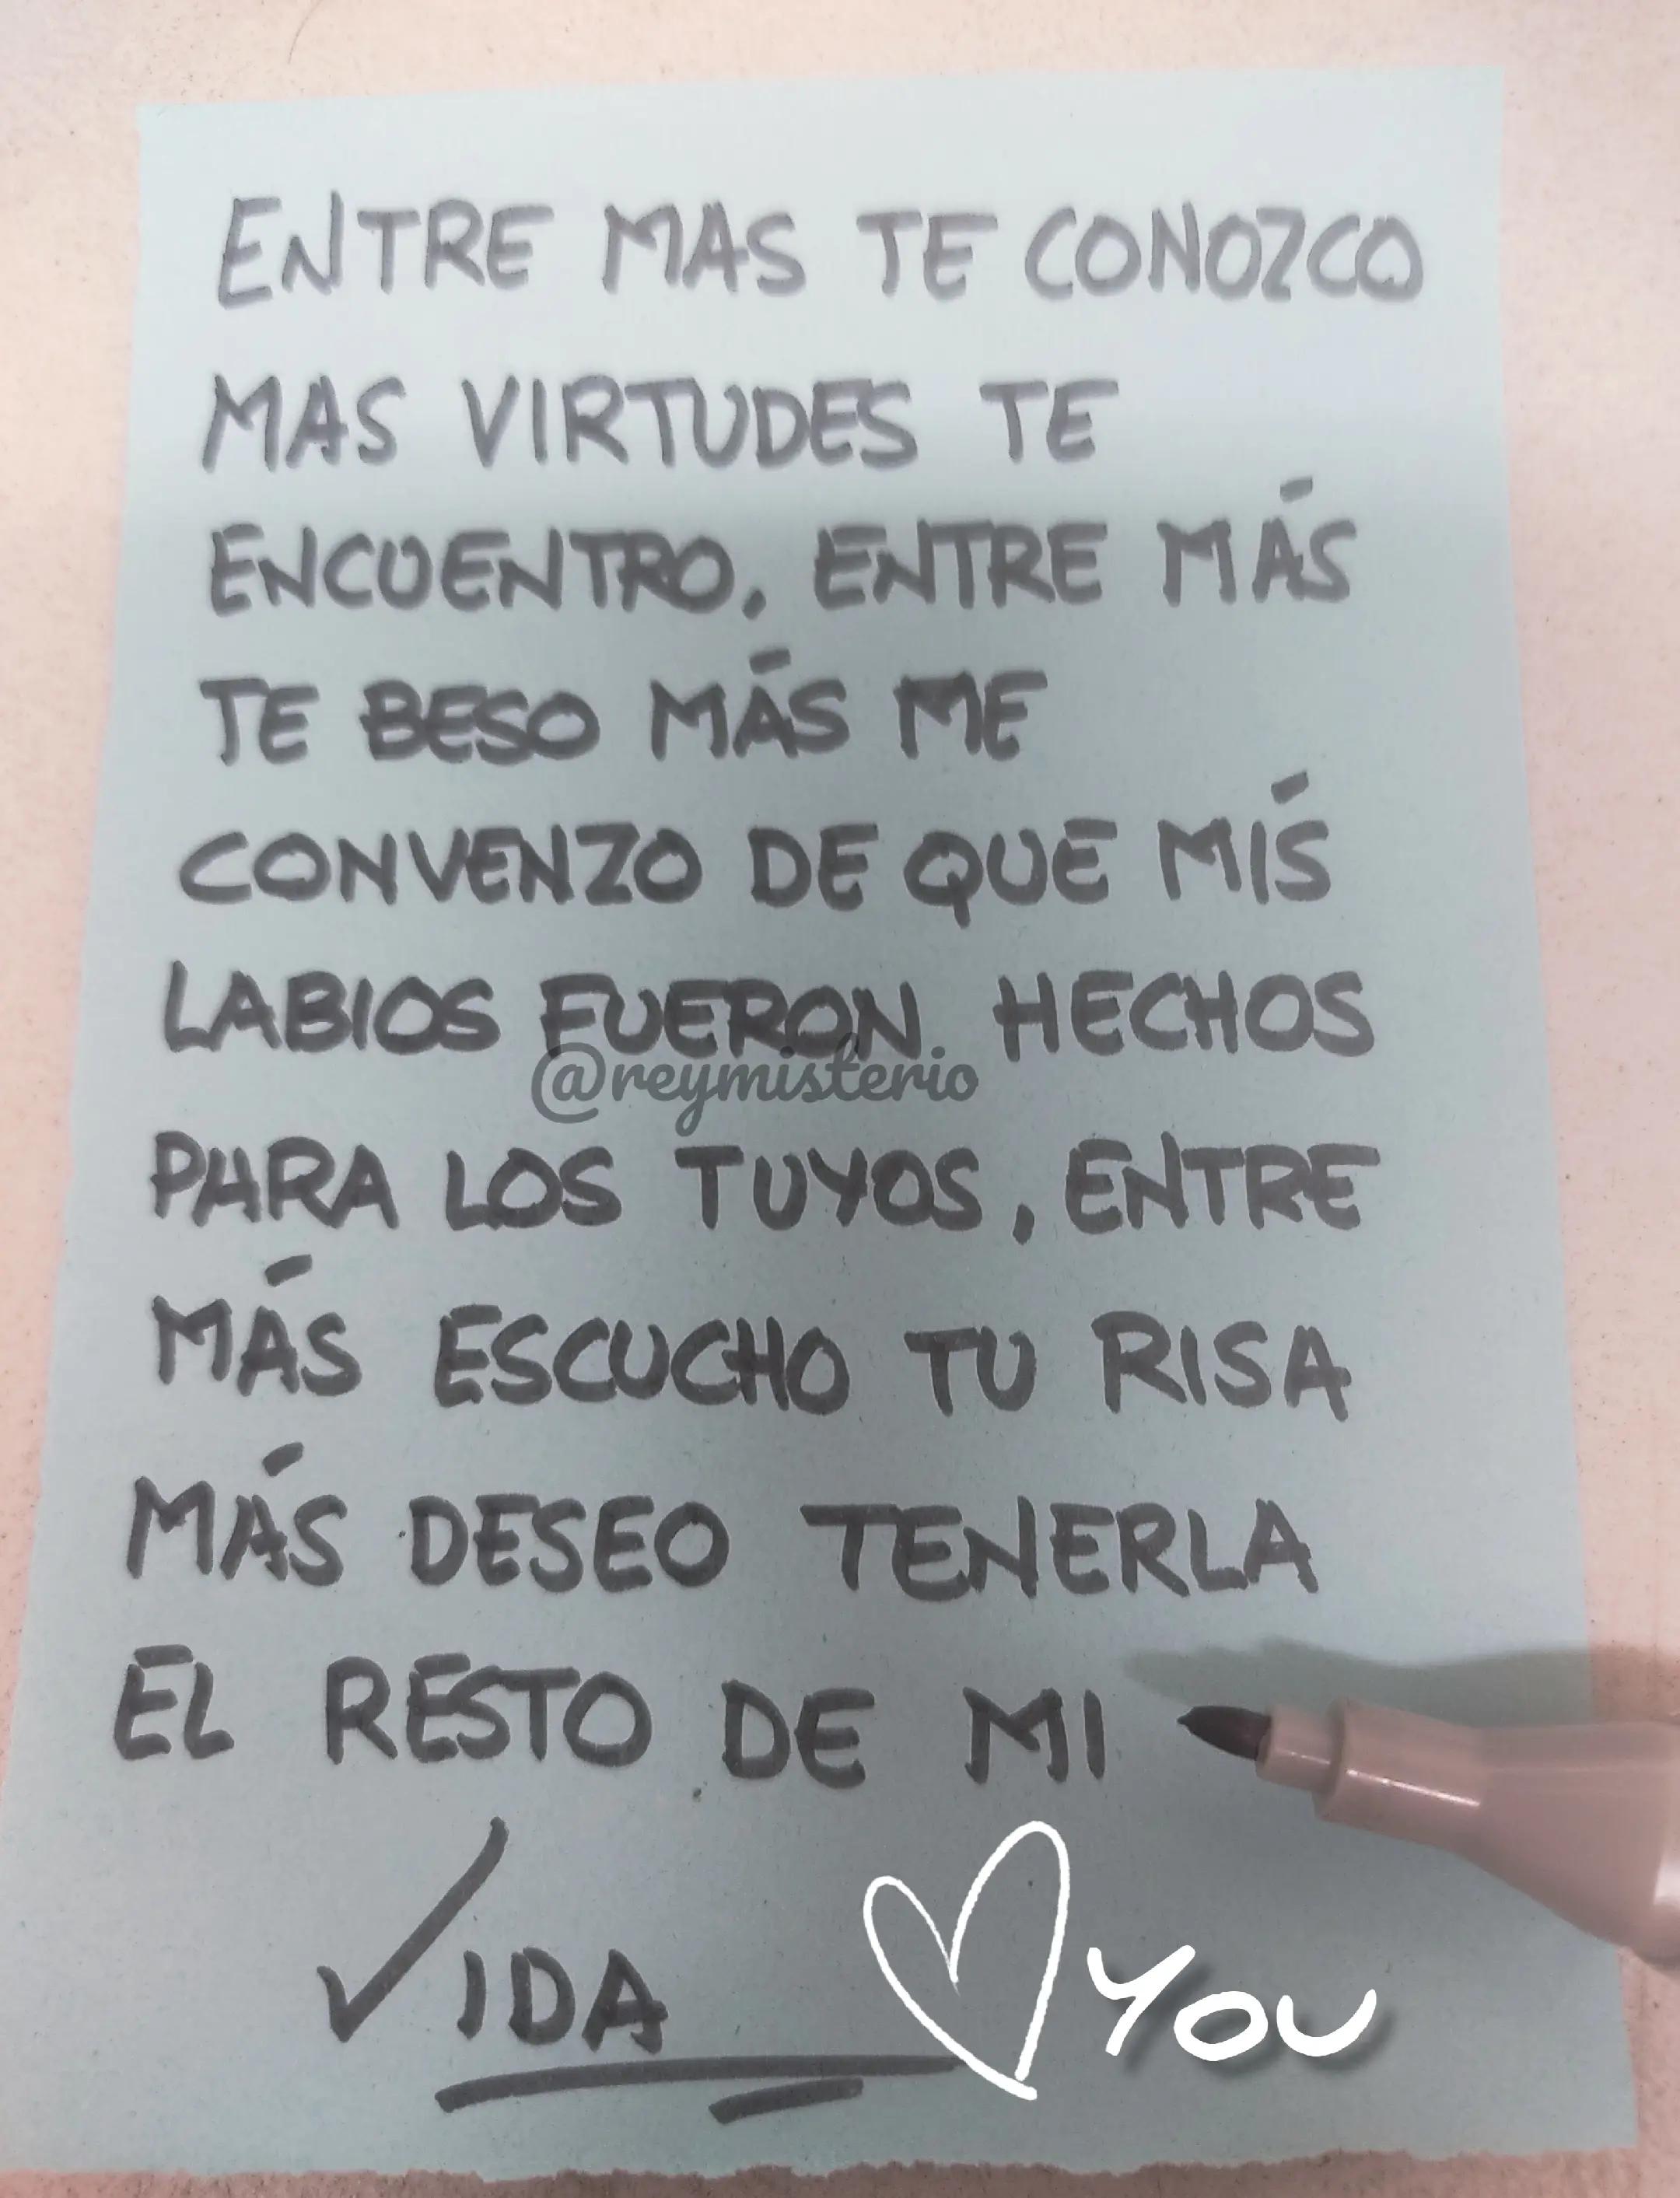 ENTRE MAS TE CONOZCO
MAS VIRTUDES TE
ENCUENTRO, ENTRE MÁS
TE BESO MÁS ME
CONVENZO DE QUE MÍS
LABIOS FUERON HECHOS
@reymisterio
PARA LOS TUYOS, ENTRE
MÁS ESCUCHO TU RISA
MÁS DESEO TENERLA
EL RESTO DE MI
VIDA
YOU